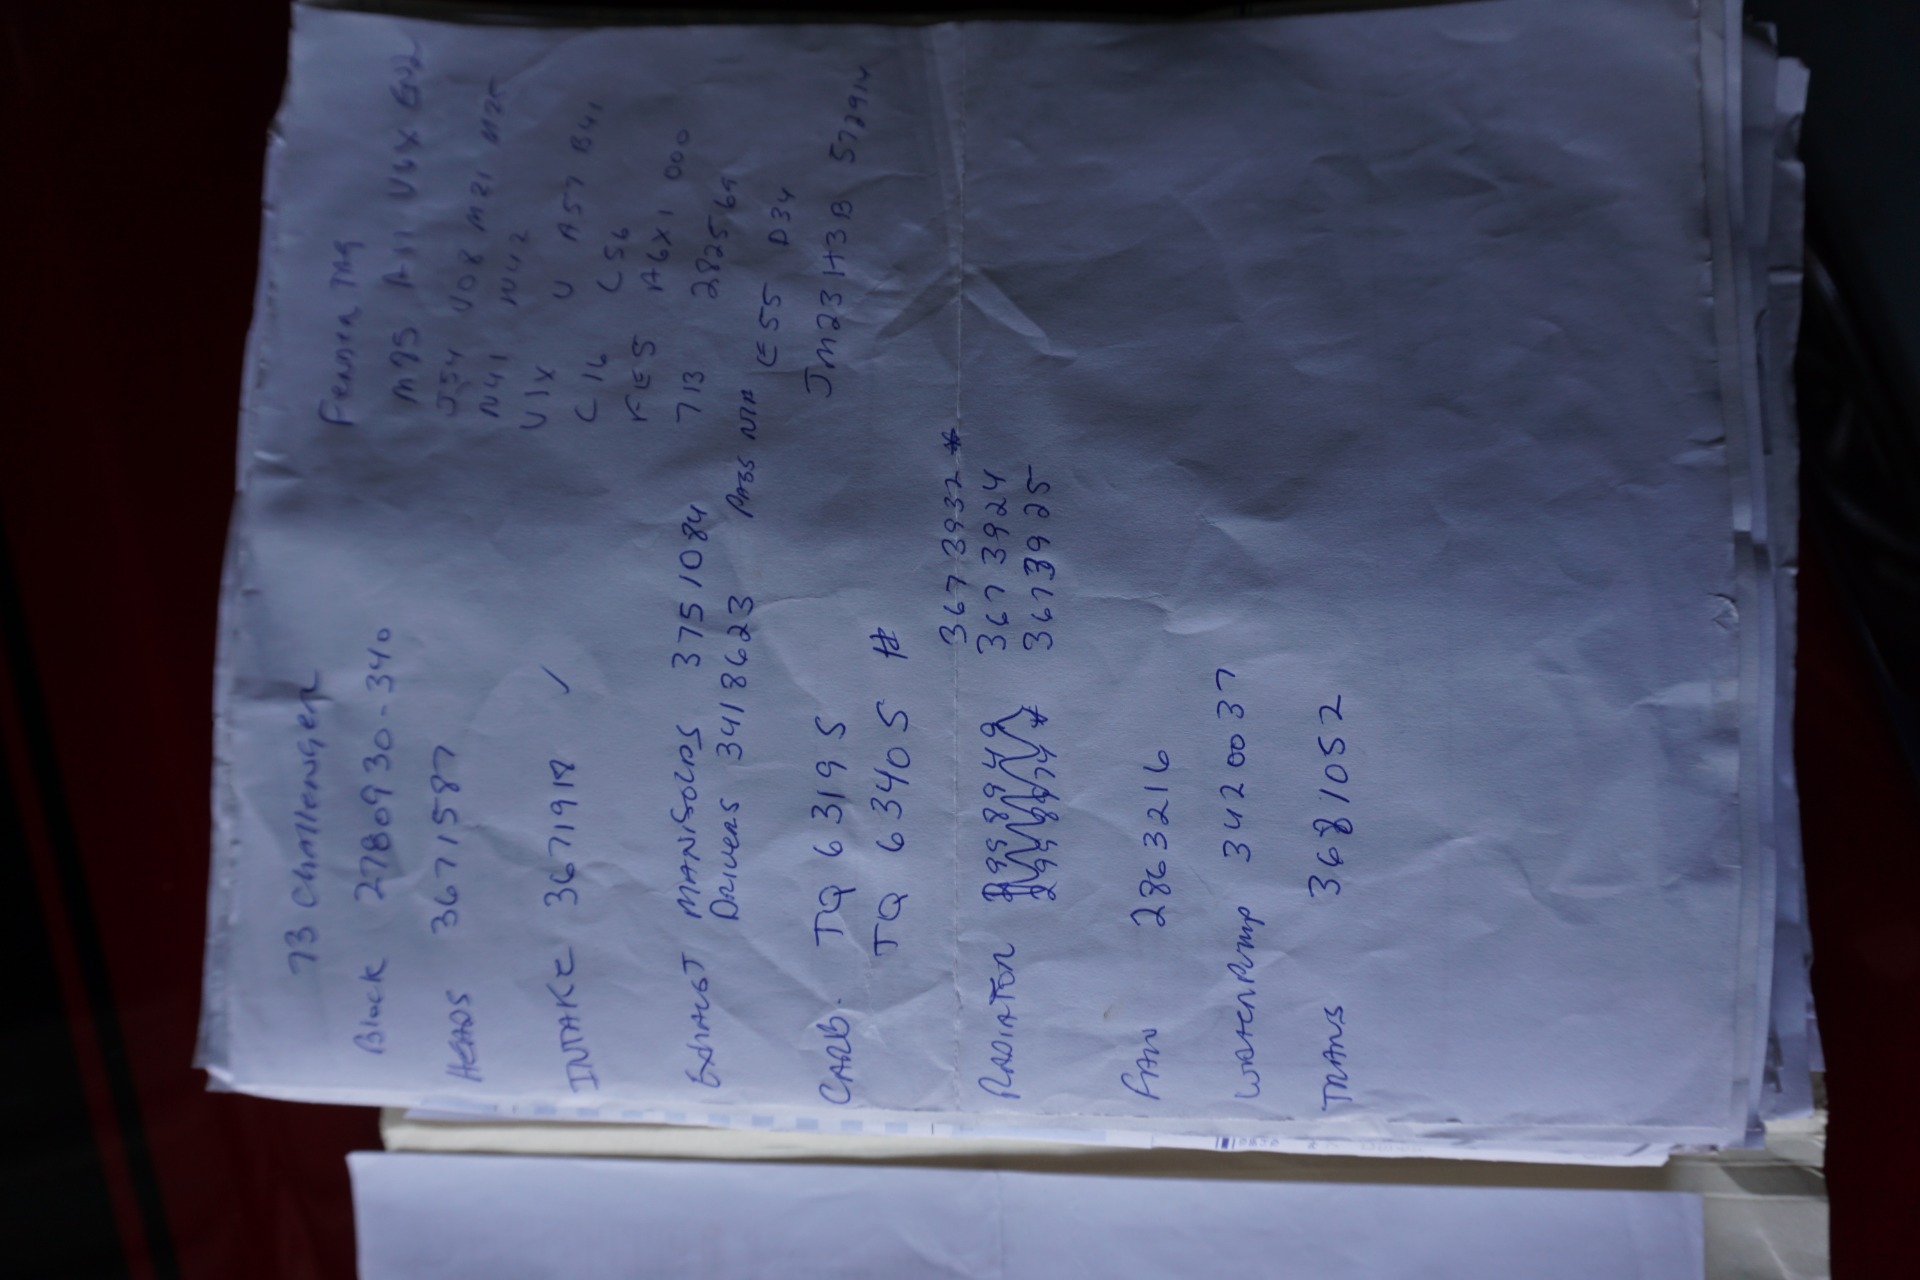 73 Challenger
Block 2780930-340
HEADS 3671587
INTAKE 3671918 ✓
EXHAUST MANIFOLDS 3751084
Drivers 3418623 PASS NTR
CARB. TQ 6319S
TQ 6340S #
3673932 *
RADIATOR 3673924
3673925
FAN 2863216
WATERPUMP 3420037
TRANS 3681052
Fender TAG
M95 A11 V6X EN2
J54 V08 M21 M25
N41 N42
V1X U A57 B41
C16 C56
FE5 A6X1 000
713 282569
E55 D34
JM23H3B 572914